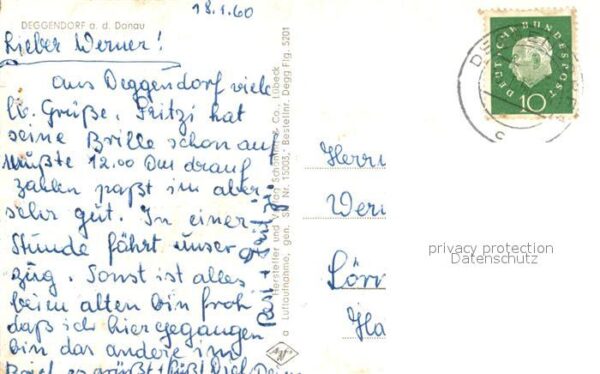 18.1.60
DEGGENDORF a. d. Donau
Lieber Werner!
aus Deggendorf viele
lb. Grüße. Fritzi hat
seine Brille schon auf
mußte 12.00 DM drauf
zahlen paßt im aber
sehr gut. In einer
Stunde fährt unser
zug. Sonst ist alles
beim alten bin froh
daß ich hiergegangen
bin das andere im
Brief es grüßt + küßt Dich Deine
Hersteller und Verlag Schöning & Co., Lübeck
a Luftaufnahme, gen. Nr. 15003, Bestellnr. Degg Flg. 5201
Agfa
DEUTSCHE BUNDESPOST
10
Herrn
Wern
Lörr
Ha
privacy protection
Datenschutz